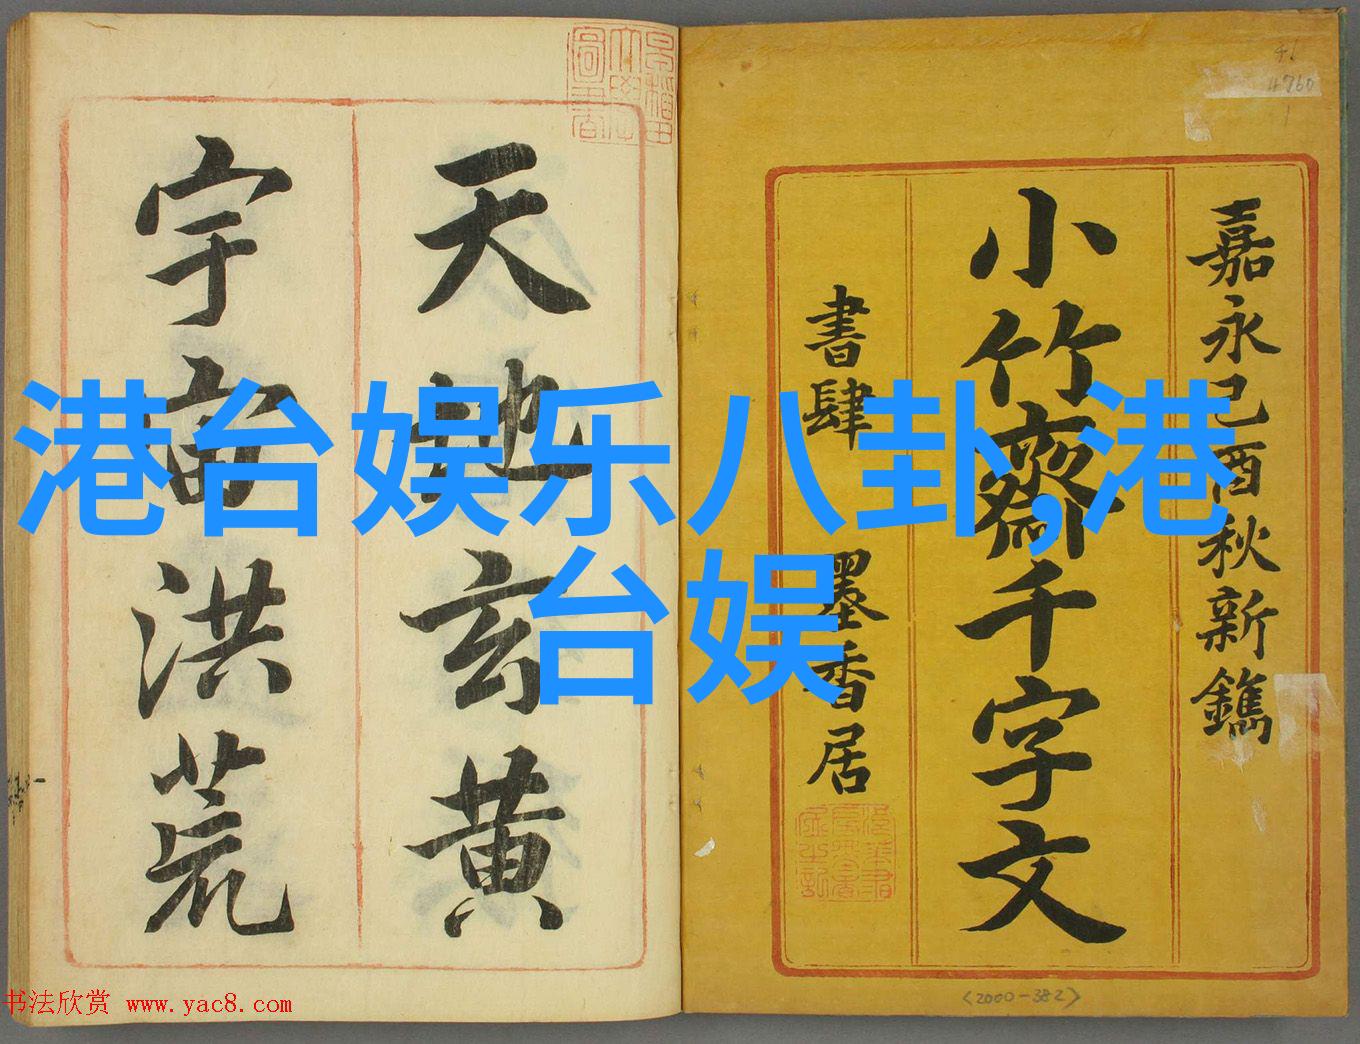 嘉永己酉秋新鐫
小竹齋千字文
書肆 墨香居
天地玄黄
宇宙洪荒
港台娱乐八卦,港
台娱
46
4760
<2000-382>
书法欣赏 www.yac8.com